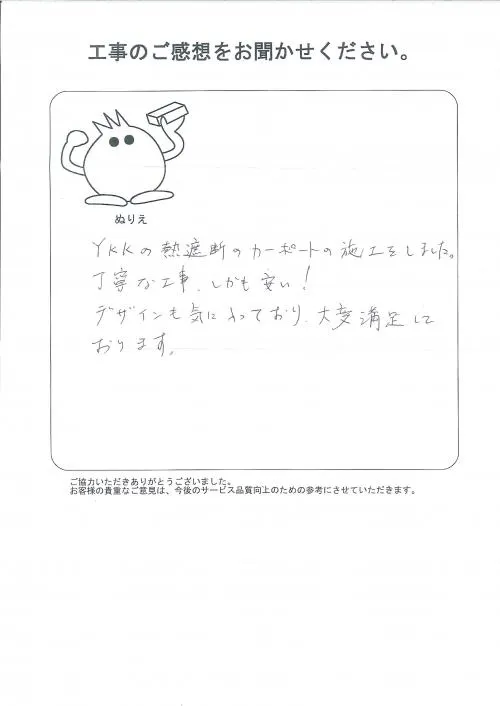 工事のご感想をお聞かせください。
ぬりえ
YKKの熱遮断のカーポートの施工をしました。
丁寧な工事、しかも安い!
デザインも気に入っており、大変満足して
おります。
ご協力いただきありがとうございました。
お客様の貴重なご意見は、今後のサービス品質向上のための参考にさせていただきます。